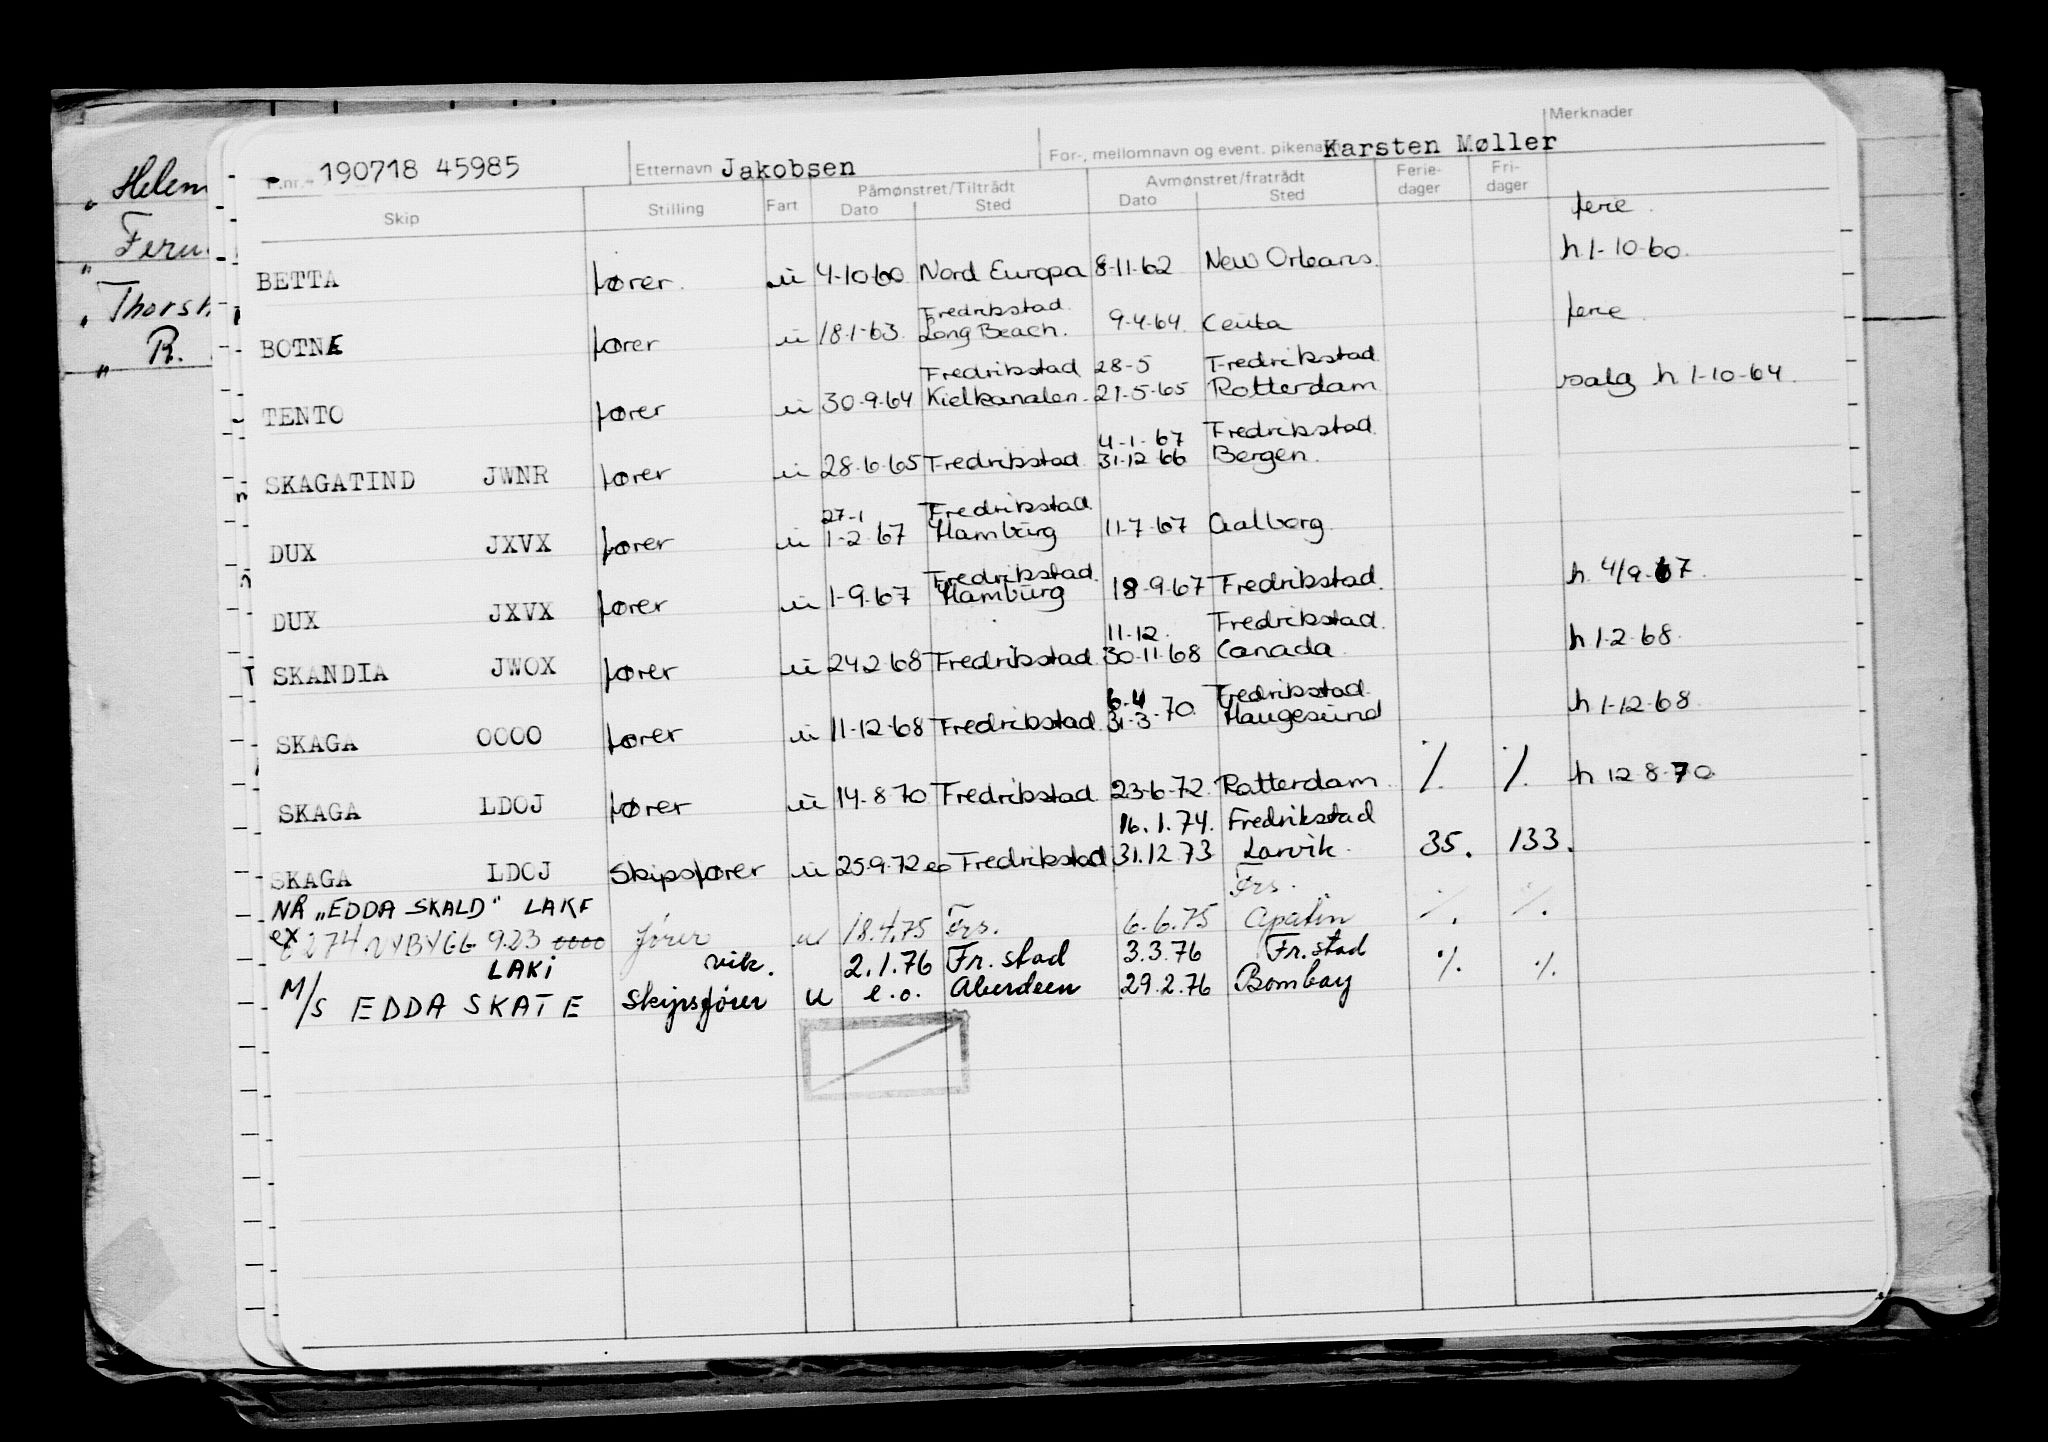 Helem
Feru
Thorsh
R.
F.nr. 190718 45985 Etternavn Jakobsen For-, mellomnavn og event. pikenavn Karsten Møller Merknader
Skip Stilling Fart Påmønstret/Tiltrådt Dato Sted Avmønstret/fratrådt Dato Sted Ferie-dager Fri-dager
ferie.
BETTA fører. u 4-10-60 Nord Europa 8-11-62 New Orleans. h 1-10-60.
Fredrikstad. ferie.
BOTNE fører u 18-1-63. Long Beach. 9-4-64. Ceuta
Fredrikstad 28-5 Fredrikstad
TENTO fører u 30-9-64 Kielkanalen. 21-5-65 Rotterdam salg h 1-10-64.
4-1-67 Fredrikstad.
SKAGATIND JWNR fører u 28-6-65 Fredrikstad 31-12-66 Bergen.
27-1 Fredrikstad
DUX JXVX fører u 1-2-67 Hamburg 11-7-67 Aalborg.
Fredrikstad.
DUX JXVX fører u 1-9-67 Hamburg 18-9-67 Fredrikstad. h 4/9-67.
11-12. Fredrikstad.
SKANDIA JWOX fører u 24-2-68 Fredrikstad 30-11-68 Canada. h 1-2-68.
6-4 Fredrikstad.
SKAGA OOOO fører u 11-12-68 Fredrikstad. 31-3-70. Haugesund h 1-12-68
SKAGA LDOJ fører u 14-8-70 Fredrikstad. 23-6-72. Rotterdam. ·/. ·/. h 12-8-70
16.1.74. Fredrikstad
SKAGA LDOJ Skipsfører u 25-9-72 eo Fredrikstad 31.12.73 Larvik. 35. 133.
NÅ "EDDA SKALD" LAKF Frs.
ex 274 NYBYGG 923 0000 fører u 18.4.75 Frs. 6.6.75 Apatin ·/. ·/.
LAKI vik. 2.1.76 Fr.stad 3.3.76 Fr.stad
M/S EDDA SKATE Skipsfører u e.o. Aberdeen 29.2.76 Bombay ·/. ·/.